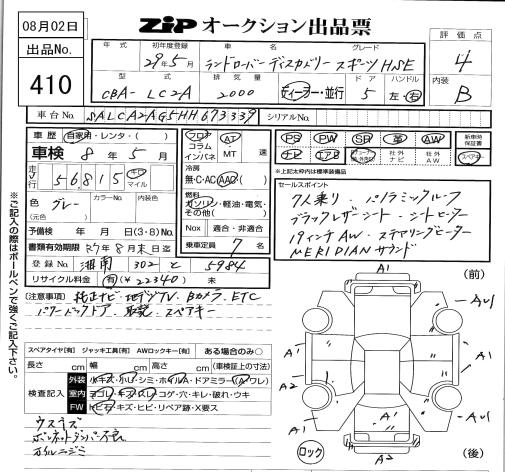 08月02日
ZIP オークション出品票
出品No.
410
評価点
4
内装
B
年式 初年度登録 車名 グレード
29年5月 ランドローバー ディスカバリー スポーツ HSE
型式 排気量 ドア ハンドル
CBA-LC2A 2000 ディーラー・並行 5 左・右
車台No. SALCA2AG5HH673339 シリアルNo.
車歴 自家用・レンタ・( )
車検 8年5月
走行 56,815 キロ マイル
色 グレー カラーNo. 内装色
(元色)
予備検 年 月 日 (3・8) No.
書類有効期限 R7年8月末日迄
登録No. 湘南 302 と 5984
リサイクル料金 有(¥22340) 未
フロア コラム インパネ
AT・MT 速
冷房
無・C・AC・AAC
燃料
ガソリン・軽油・電気・その他( )
Nox 適合・非適合
乗車定員 7名
PS PW SR 革 AW
ナビ エアB 社外ナビ 社外AW
新車時保証書
スペアキー
※上記太枠内は標準装備品
セールスポイント
7人乗り・パノラミックルーフ
ブラックレザーシート・シートヒーター
19インチAW・ステアリングヒーター
MERIDIANサウンド
(注意事項) 純正ナビ・地デジTV・Bカメラ・ETC
パワーバックドア・取説・スペアキー
※ご記入の際はボールペンで強くご記入下さい。
スペアタイヤ[有] ジャッキ工具[有] AWロックキー[有] ある場合のみ○
長さ cm 幅 cm 高さ cm (車検証上の寸法)
検査記入
外装 小キズ・小じ・シミ・ホイルA・ドアミラー(A ワレ)
室内 ヨゴレ・キズ・スレ・コゲ・穴・キレ・破れ・ウキ
FW トビ石・キズ・ヒビ・リペア跡・X要ス
ウスキズ
ボンネットダンパー不良
ホイルニジミ
(前)
A1
AU1
A1
A1
A2
A1
A1
AU1
A1
A2
ロック
(後)